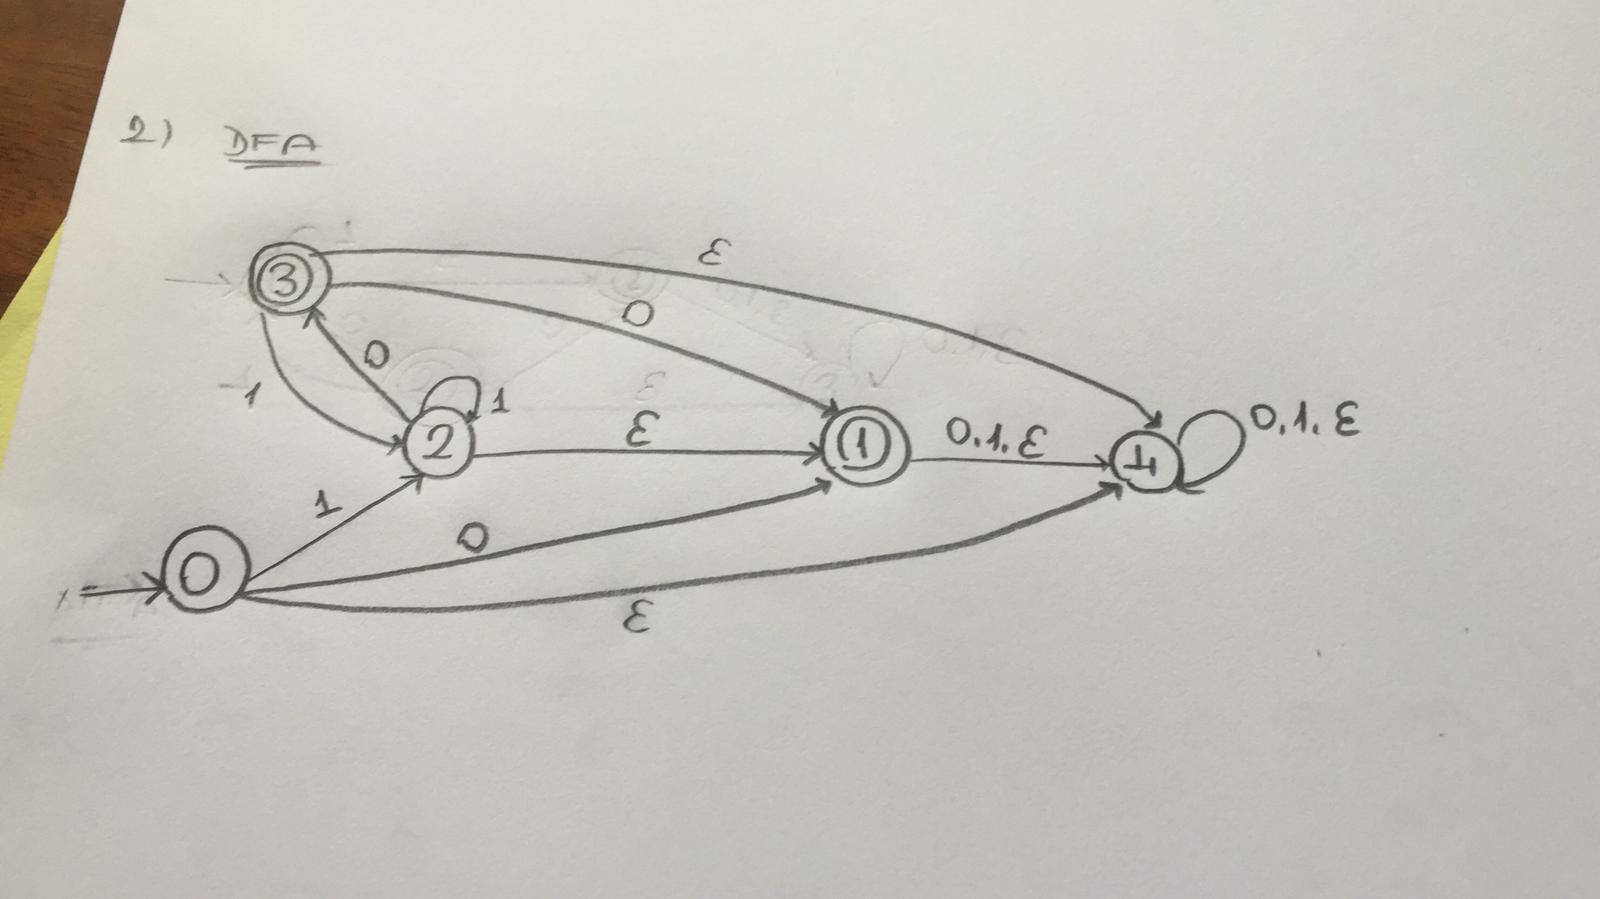 2) DFA
ε
3
0
0
1
1
2
ε
1
0,1,ε
4
0,1,ε
1
0
0
ε